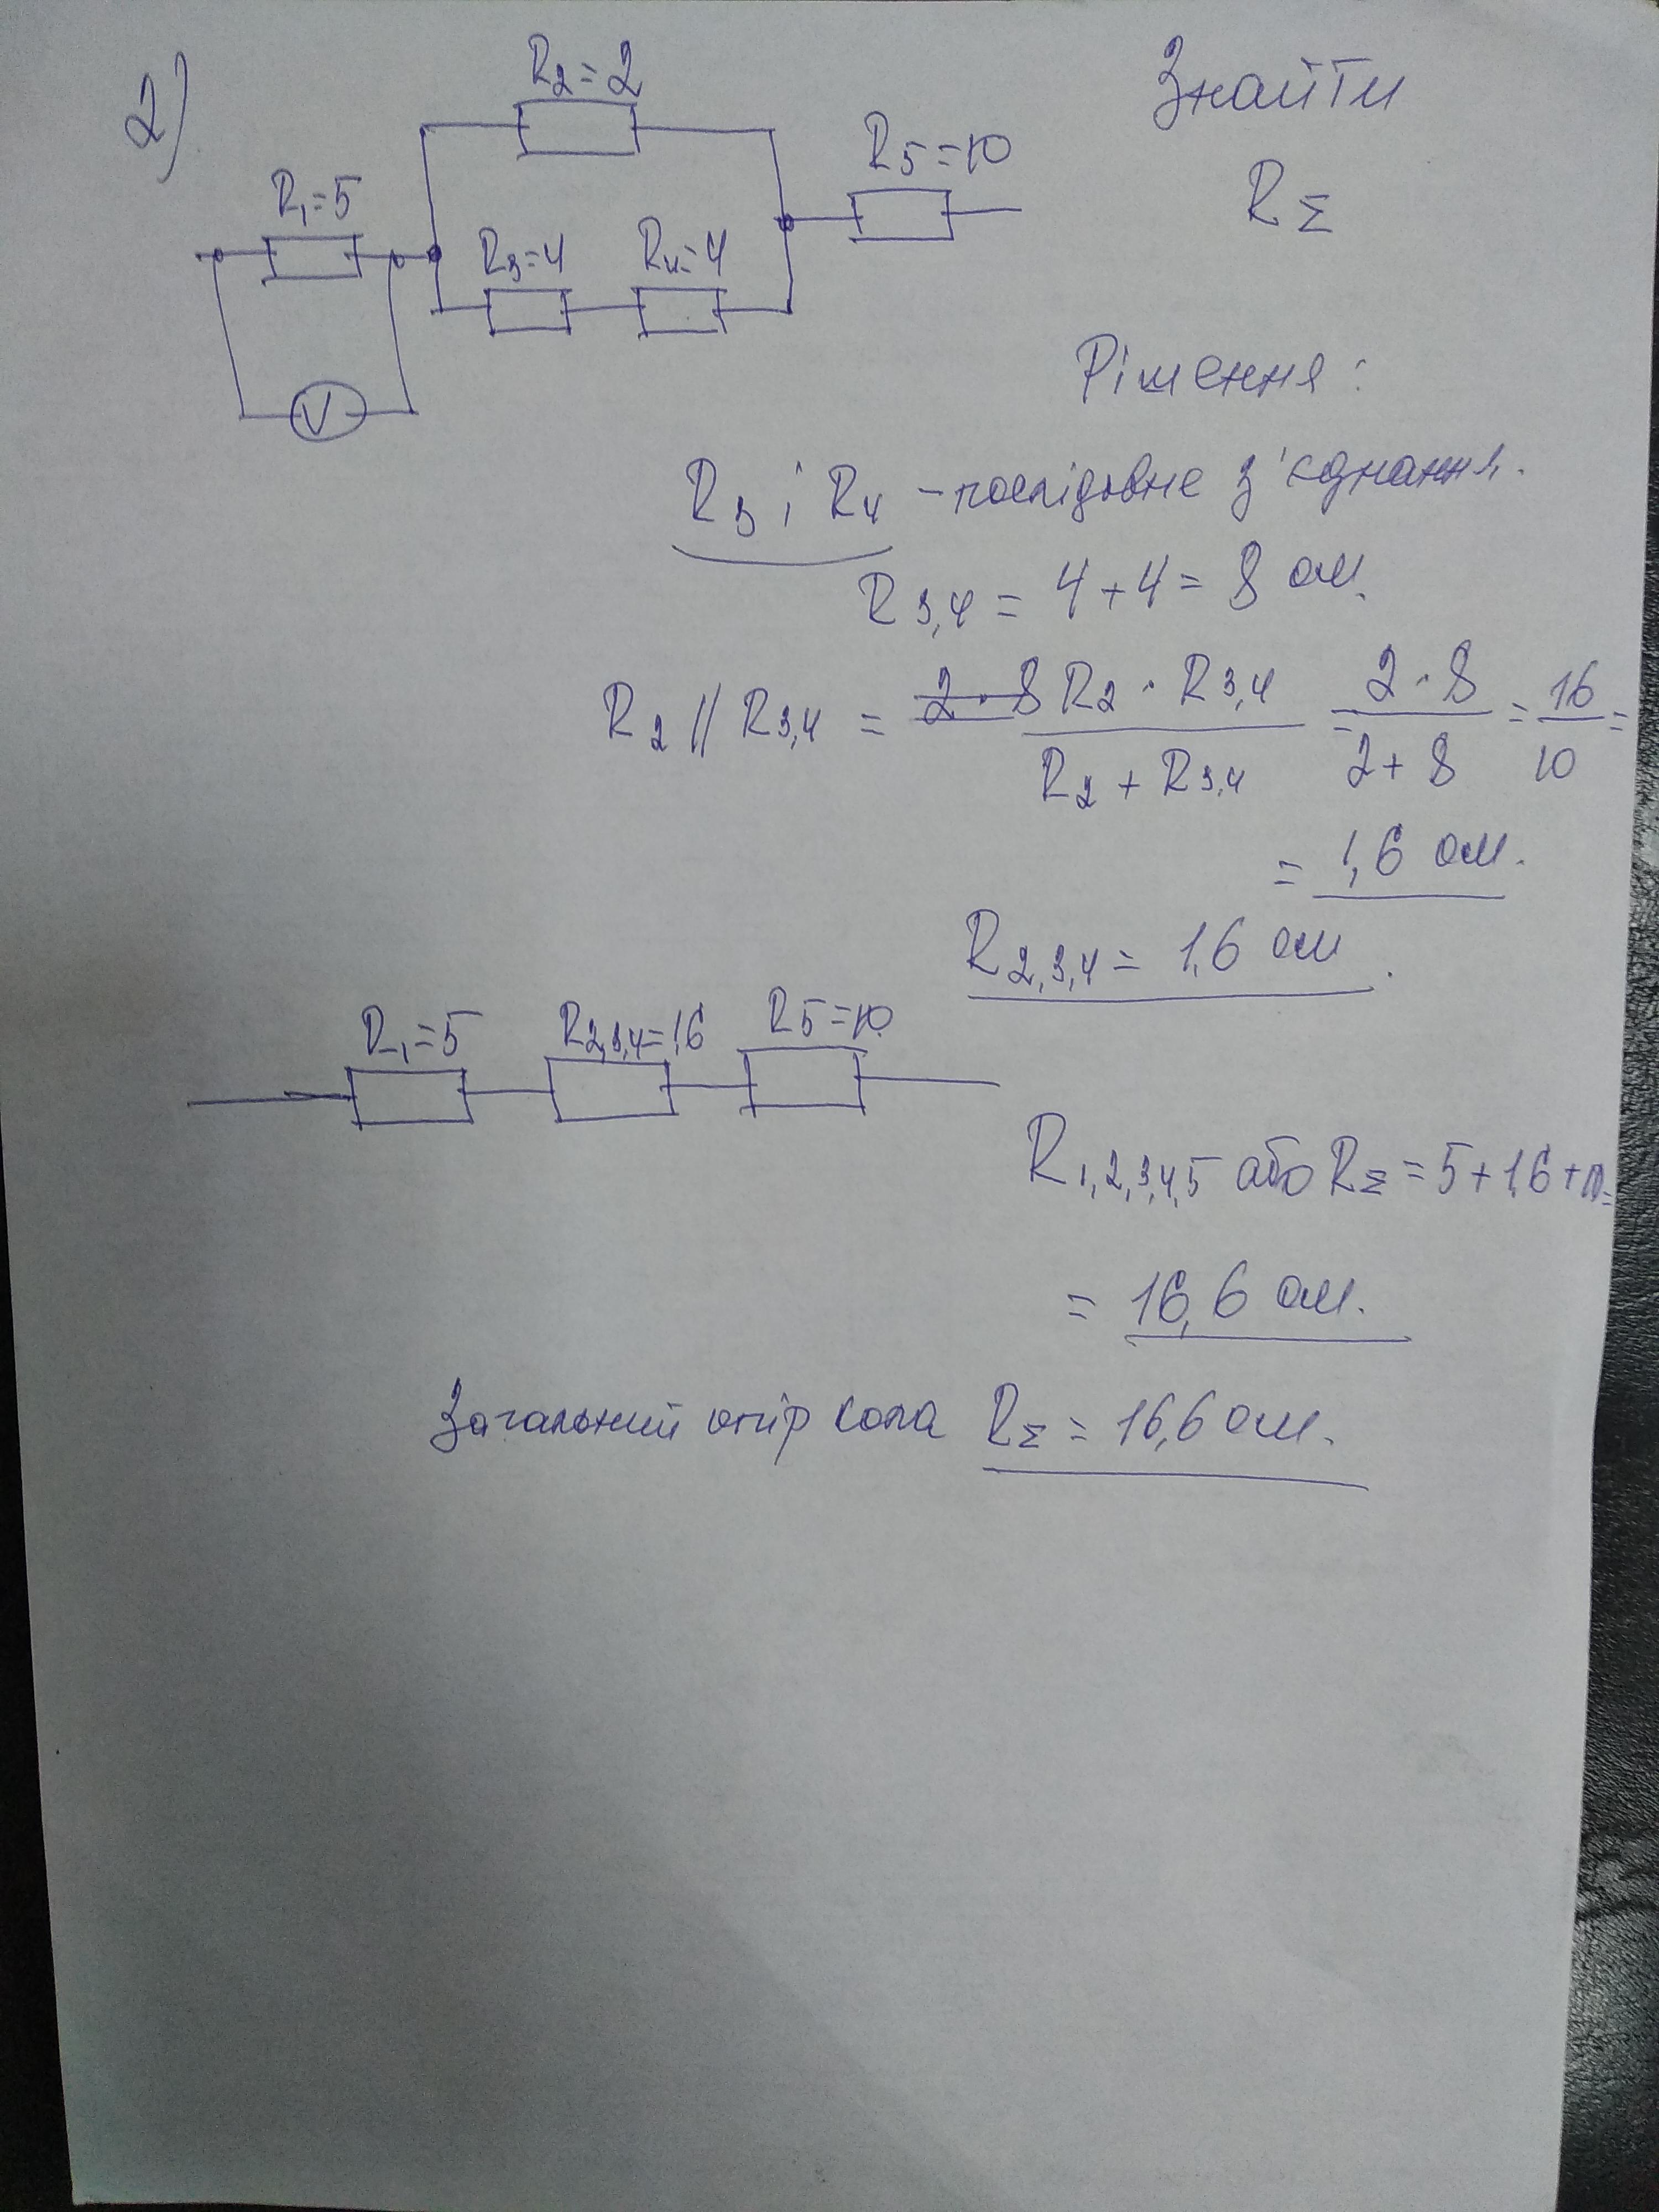 2)
R2=2
Знайти
R5=10
RΣ
R1=5
R3=4
R4=4
V
Рішення:
R3 і R4 – послідовне з'єднання.
R3,4 = 4+4= 8 ом.
R2 // R3,4 = 2·8 R2 · R3,4 / R2 + R3,4 = 2·8 / 2+8 = 16 / 10 =
= 1,6 ом.
R2,3,4 = 1,6 ом.
R1=5
R2,3,4=1,6
R5=10
R1,2,3,4,5 або RΣ = 5+1,6+10=
= 16,6 ом.
Загальний опір кола RΣ = 16,6 ом.